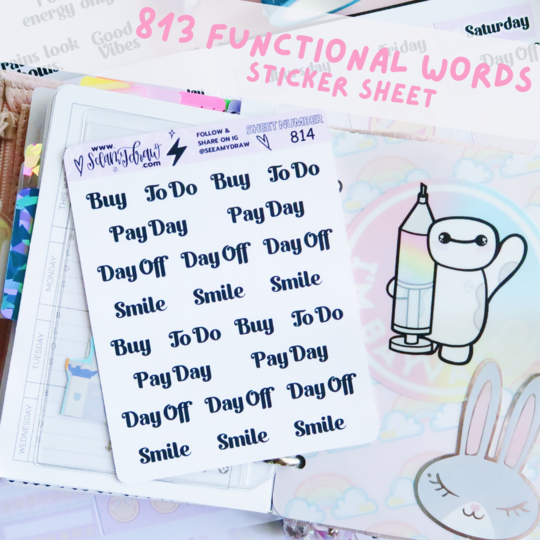 813 FUNCTIONAL WORDS
STICKER SHEET
energy only
Good
Vibes
Saturday
Friday
Day Off
www.
SeeAmyDraw
.com
FOLLOW &
SHARE ON IG
@SEEAMYDRAW
SHEET NUMBER
814
Buy To Do Buy To Do
Pay Day Pay Day
Day Off Day Off Day Off
Smile Smile Smile
Buy To Do Buy To Do
Pay Day Pay Day
Day Off Day Off Day Off
Smile Smile Smile
MONDAY
TUESDAY
WEDNESDAY